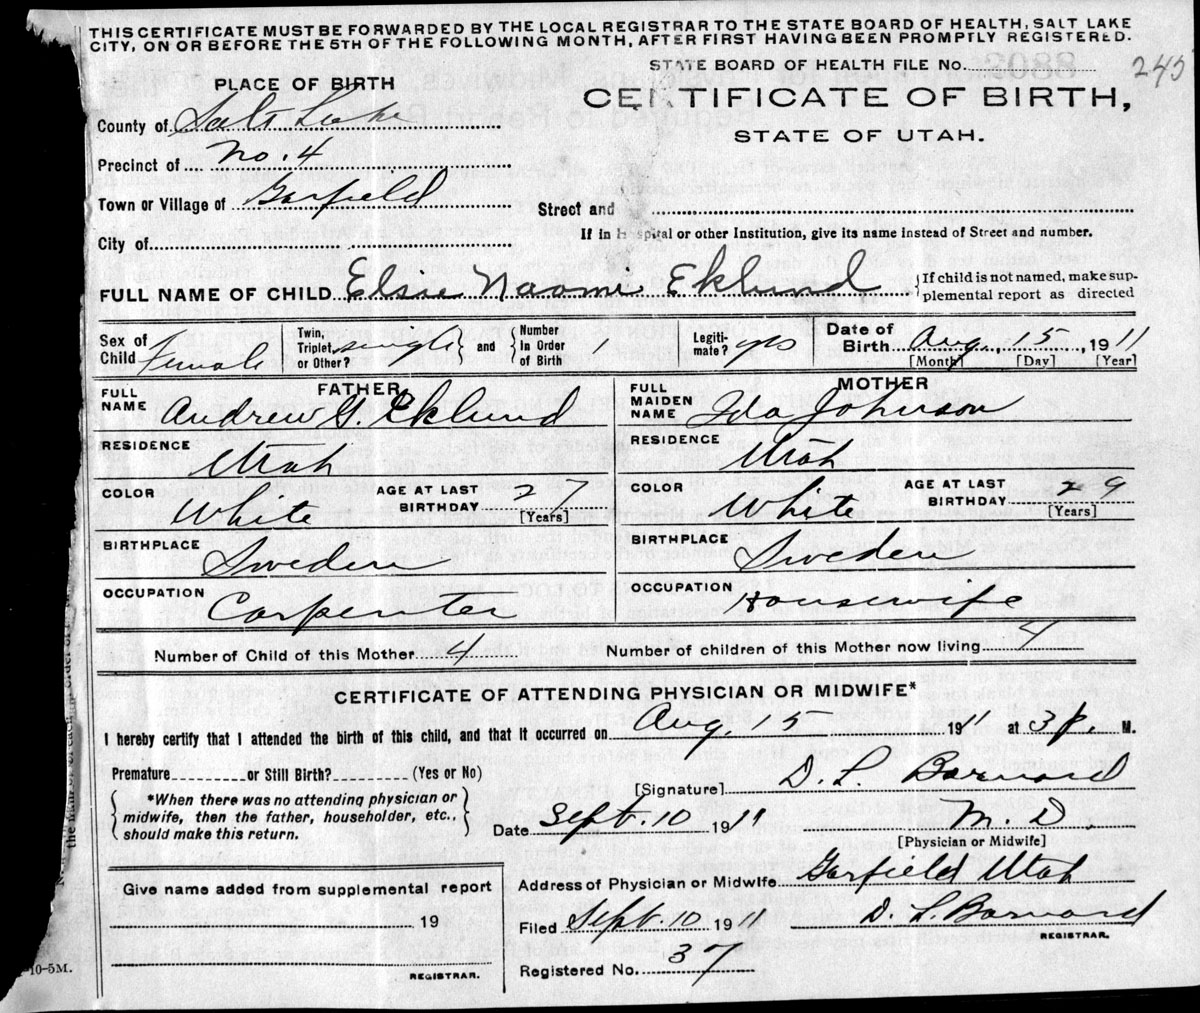 THIS CERTIFICATE MUST BE FORWARDED BY THE LOCAL REGISTRAR TO THE STATE BOARD OF HEALTH, SALT LAKE
CITY, ON OR BEFORE THE 5TH OF THE FOLLOWING MONTH, AFTER FIRST HAVING BEEN PROMPTLY REGISTERED.
STATE BOARD OF HEALTH FILE No. 245
PLACE OF BIRTH
CERTIFICATE OF BIRTH,
STATE OF UTAH.
County of Salt Lake
Precinct of No. 4
Town or Village of Garfield
Street and
City of
If in Hospital or other Institution, give its name instead of Street and number.
FULL NAME OF CHILD Elsie Naomi Eklund {If child is not named, make sup-
plemental report as directed
Sex of Child Female
Twin, Triplet, or Other? single } and { Number In Order of Birth 1
Legiti-mate? yes
Date of Birth Aug. 15, 1911
[Month] [Day] [Year]
FATHER
FULL NAME Andrew G. Eklund
RESIDENCE Utah
COLOR White AGE AT LAST BIRTHDAY 27
[Years]
BIRTHPLACE Sweden
OCCUPATION Carpenter
MOTHER
FULL MAIDEN NAME Ida Johnson
RESIDENCE Utah
COLOR White AGE AT LAST BIRTHDAY 29
[Years]
BIRTHPLACE Sweden
OCCUPATION Housewife
Number of Child of this Mother 4 Number of children of this Mother now living 4
CERTIFICATE OF ATTENDING PHYSICIAN OR MIDWIFE*
I hereby certify that I attended the birth of this child, and that it occurred on Aug. 15 1911 at 3 p. M.
Premature or Still Birth? (Yes or No)
[Signature] D. L. Barnard
{ *When there was no attending physician or
midwife, then the father, householder, etc.,
should make this return. }
Date Sept. 10 1911 M. D.
[Physician or Midwife]
Give name added from supplemental report
19
REGISTRAR.
Address of Physician or Midwife Garfield Utah
Filed Sept. 10 1911 D. L. Barnard
REGISTRAR.
Registered No. 37
10-5M.